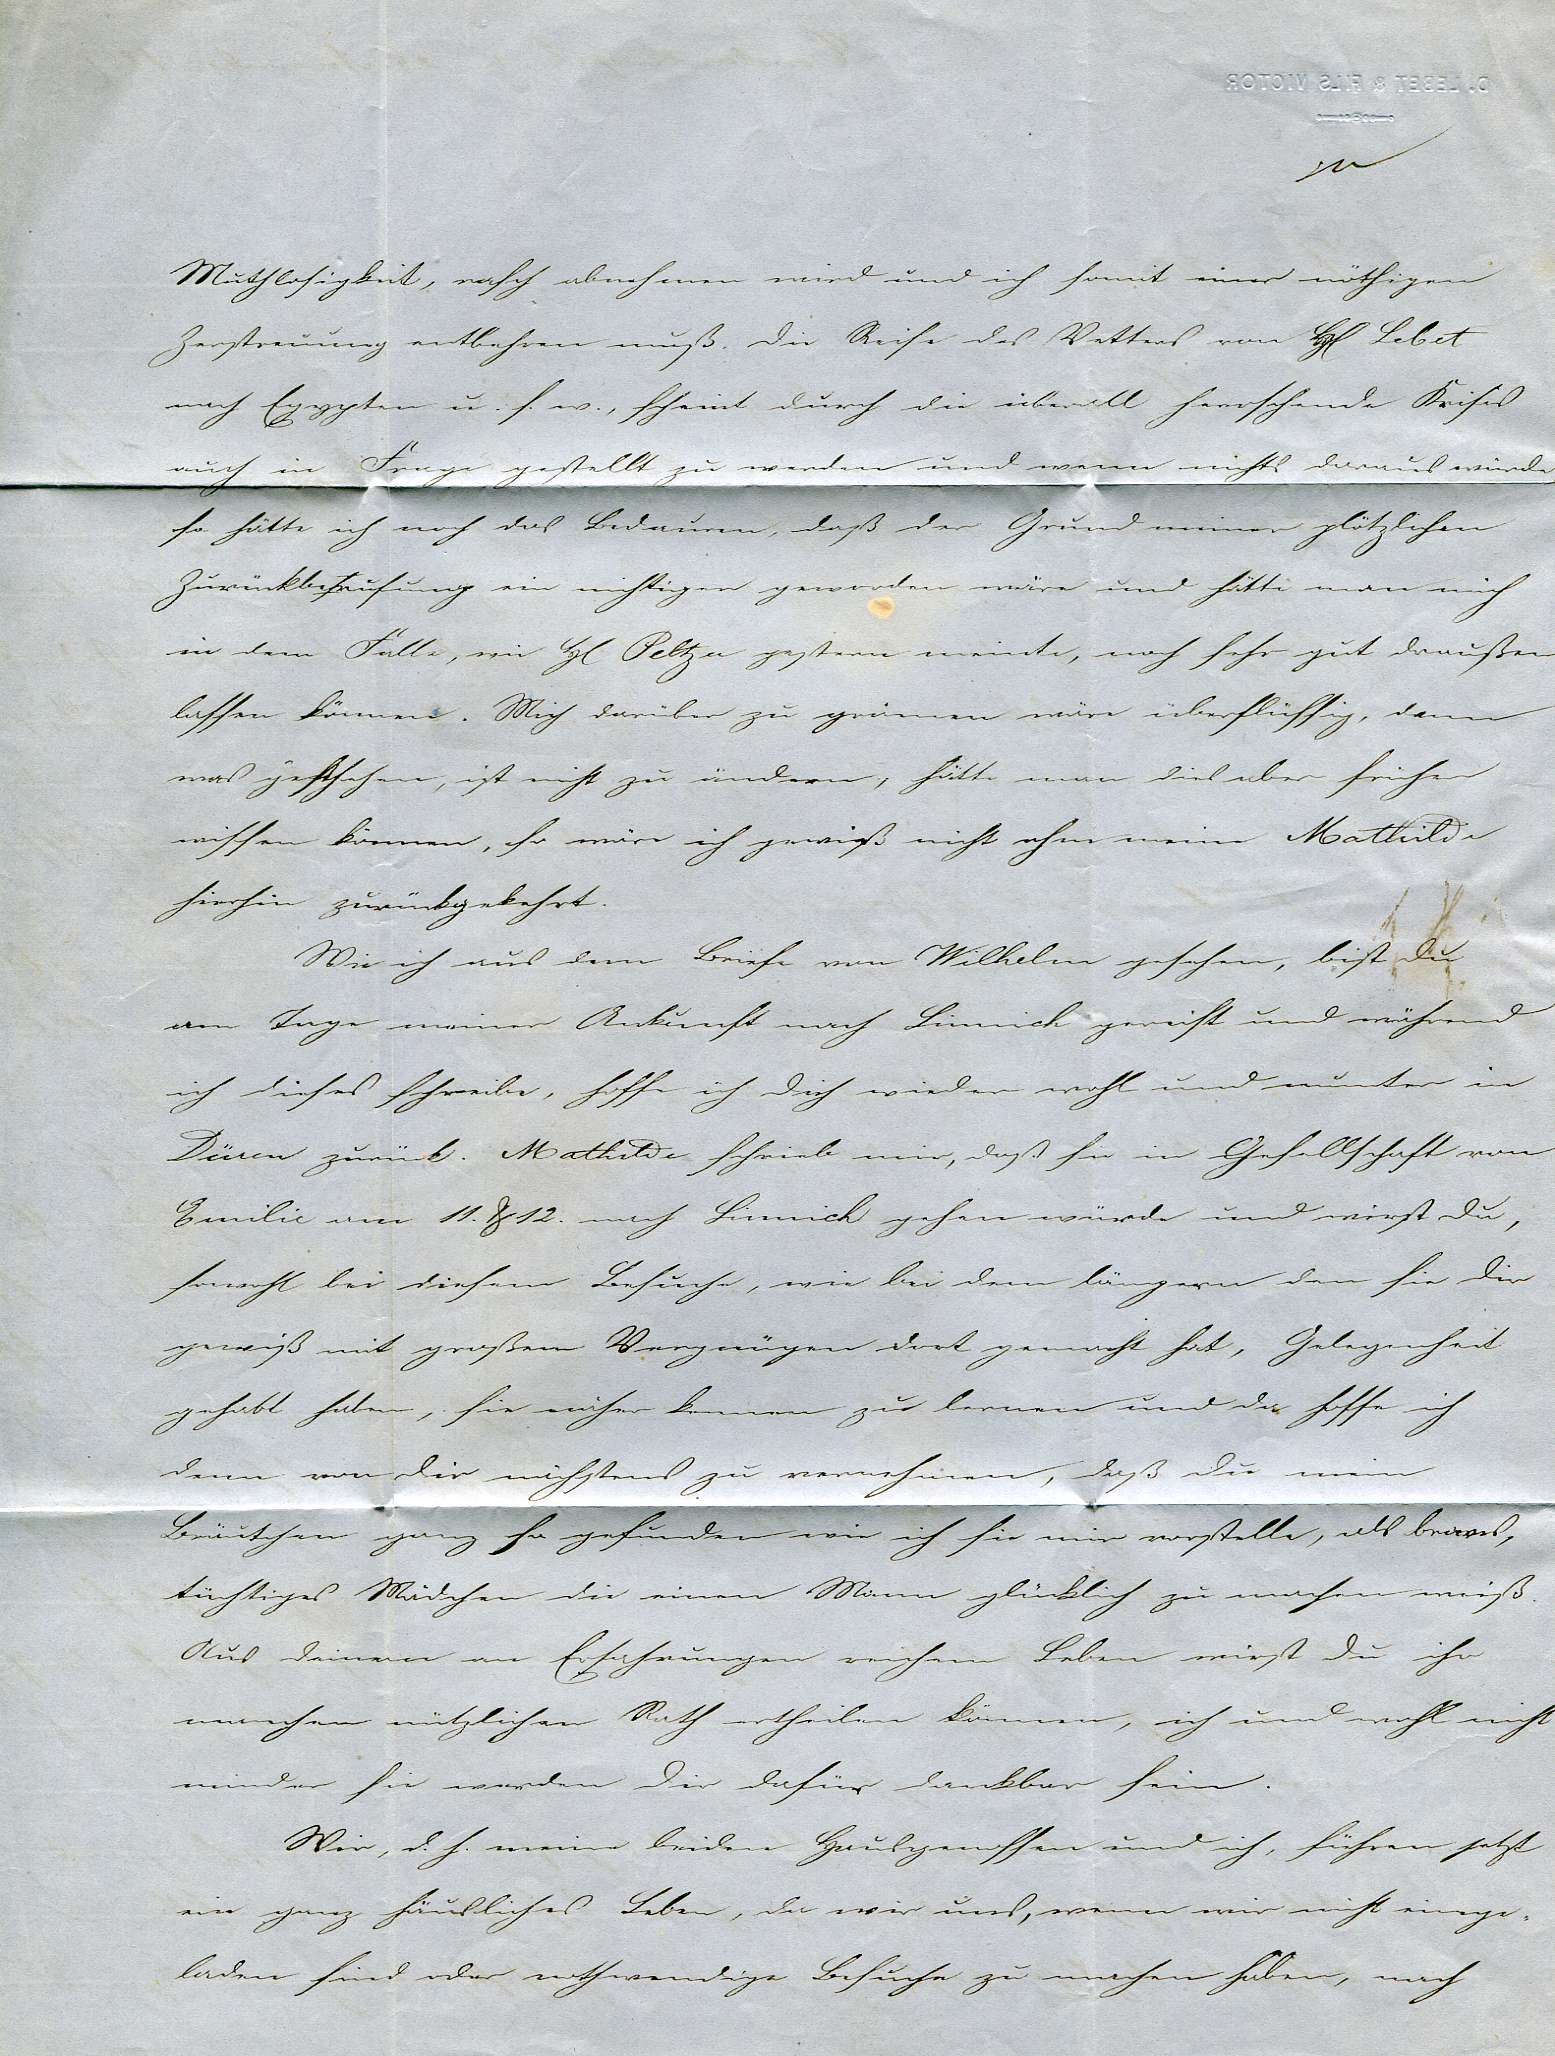 D. LEBET & FILS VICTOR
Muthlosigkeit, rasch abnehmen wird und ich somit einer nöthigen
Zerstreuung entbehren muß. Die Reise des Vetters von H. Lebet
nach Egypten u. s. w., scheint durch die überall herrschende Krisis
auch in Frage gestellt zu werden und wenn nichts daraus würde
so hätte ich noch das Bedauern, daß der Grund meiner plötzlichen
ein nichtiger geworden wäre und hätte man mich
in dem Falle, wie H. Peltzer gestern meinte, noch sehr gut draußen
lassen können. Mich darüber zu grämen wäre überflüssig, denn
was geschehen, ist nicht zu ändern, hätte man dies aber früher
wissen können, so wäre ich gewiß nicht ohne meine Mathilde
hierhin zurückgekehrt.
Wie ich aus dem Briefe von Wilhelm gesehen, bist Du
am Tage meiner Ankunft nach Linnich gereist und während
ich dieses schreibe, hoffe ich Dich wieder wohl und munter in
Düren zurück. Mathilde schrieb mir, daß sie in Gesellschaft von
Emilie am 11. & 12. nach Linnich gehen würde und wirst Du,
sowohl bei diesem Besuche, wie bei dem längern den sie Dir
gewiß mit großem Vergnügen dort gemacht hat, Gelegenheit
gehabt haben, sie näher kennen zu lernen und da hoffe ich
denn von Dir nächstens zu vernehmen, daß Du mein
Bräutchen ganz so gefunden wie ich sie mir vorstelle, als braves,
tüchtiges Mädchen die einen Mann glücklich zu machen weiß.
Aus Deinem an Erfahrungen reichem Leben wirst Du ihr
manchen nützlichen Rath ertheilen können, ich und wohl nicht
minder sie werden Dir dafür dankbar sein.
Wir, d. h. meine beiden Hausgenossen und ich, führen jetzt
ein ganz häusliches Leben, da wir uns, wenn wir nicht einge-
laden sind oder nothwendige Besuche zu machen haben, nach